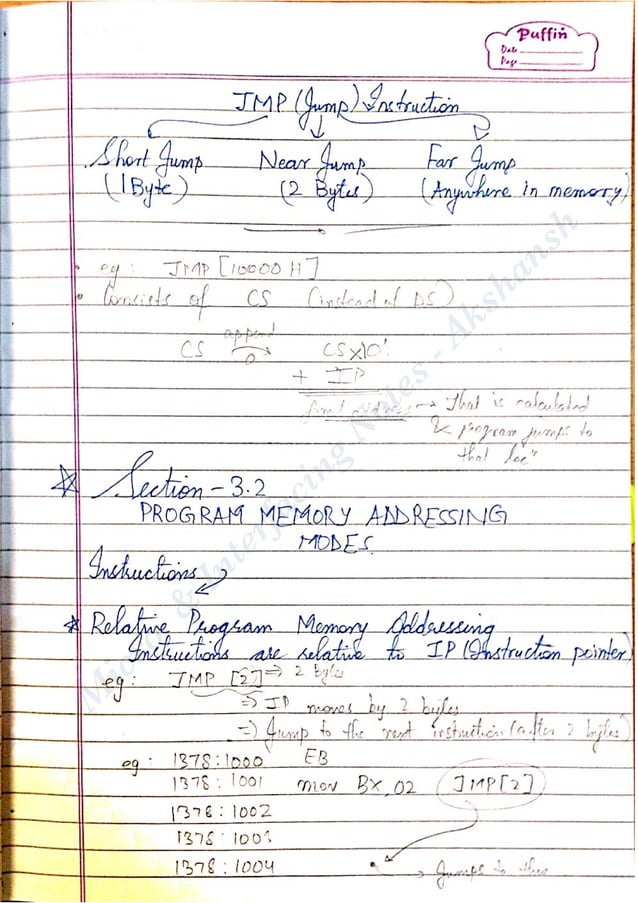 Puffin
Date
Page
JMP (Jump) Instruction
Short Jump Near Jump Far Jump
(1 Byte) (2 Bytes) (Anywhere in memory)
• eg: JMP [10000 H]
• Consists of CS (instead of DS)
append
CS 0 CS×10
+ IP
final address → That is calculated
& program jumps to
that locn
* Section - 3.2
PROGRAM MEMORY ADDRESSING
MODES.
Instructions
* Relative Program Memory Addressing
Instructions are relative to IP (Instruction pointer)
eg: JMP [2] ⇒ 2 bytes
⇒ IP moves by 2 bytes
⇒ Jump to the next instruction (after 2 bytes)
eg: 1378:1000 EB
1378:1001 mov BX, 02 JMP[2]
1378:1002
1378:1003
1378:1004 → Jumps to this
Micro & Interfacing Notes - Akshansh